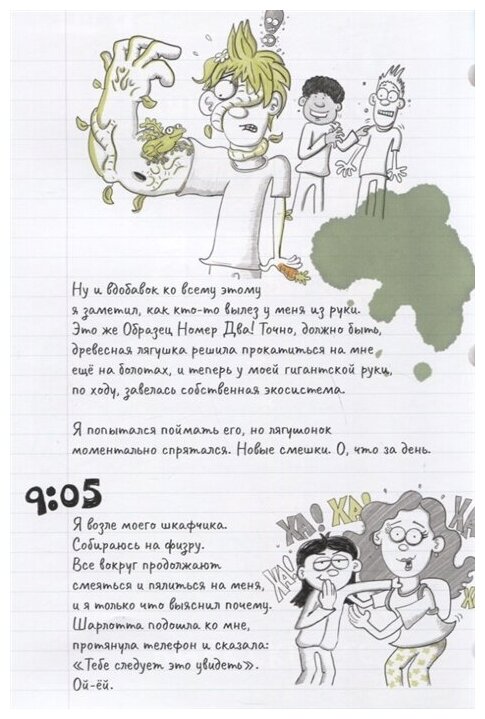 Ну и вдобавок ко всему этому
я заметил, как кто-то вылез у меня из руки.
Это же Образец Номер Два! Точно, должно быть,
древесная лягушка решила прокатиться на мне
ещё на болотах, и теперь у моей гигантской руки,
по ходу, завелась собственная экосистема.
Я попытался поймать его, но лягушонок
моментально спрятался. Новые смешки. О, что за день.
9:05
Я возле моего шкафчика.
Собираюсь на физру.
Все вокруг продолжают
смеяться и пялиться на меня,
и я только что выяснил почему.
Шарлотта подошла ко мне,
протянула телефон и сказала:
«Тебе следует это увидеть».
Ой-ёй.
ХА! ХА! ХА
ХА!